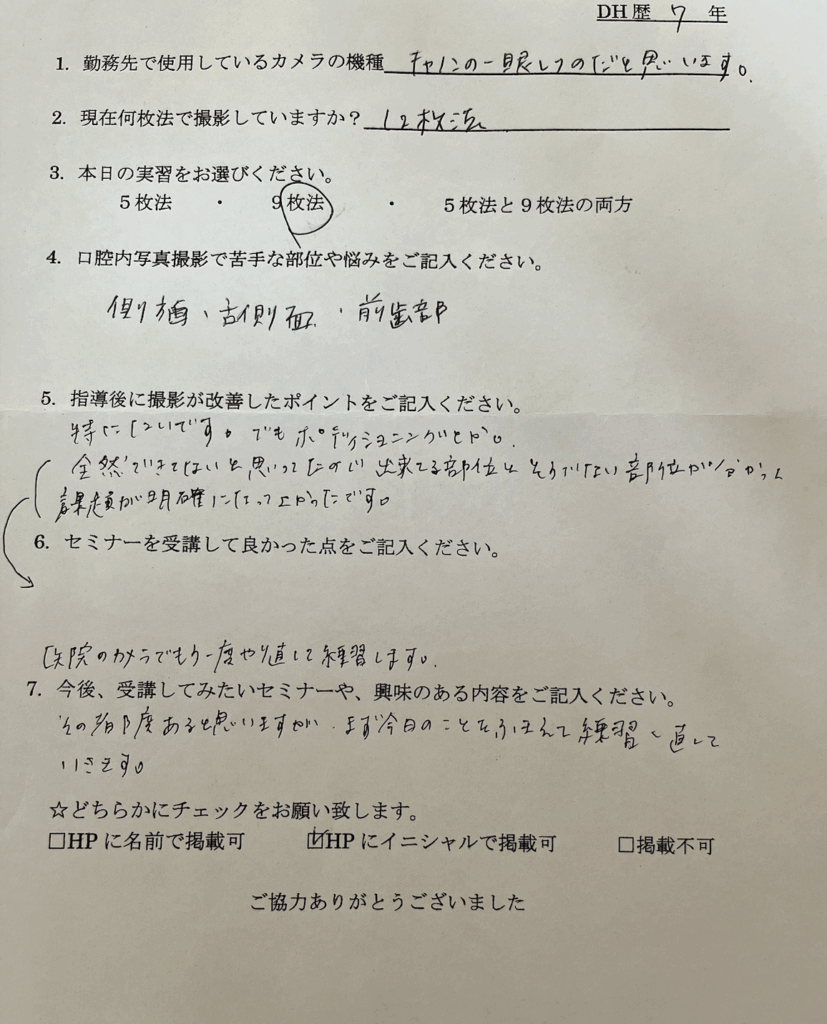 DH歴 7 年
1. 勤務先で使用しているカメラの機種 キャノンの一眼レフのだと思います。
2. 現在何枚法で撮影していますか？ 12枚法
3. 本日の実習をお選びください。
5枚法 ・ 9枚法 ・ 5枚法と9枚法の両方
4. 口腔内写真撮影で苦手な部位や悩みをご記入ください。
側方面、舌側面、前歯部
5. 指導後に撮影が改善したポイントをご記入ください。
特にないです。でもポディショニングとか。
全然できてないと思ってたので出来てる部位とそうでない部位が分かって
課題が明確になってよかったです。
6. セミナーを受講して良かった点をご記入ください。
医院のカメラでもう一度やり直して練習します。
7. 今後、受講してみたいセミナーや、興味のある内容をご記入ください。
その都度あると思いますが、まず今日のことをふまえて練習し直して
いきます。
☆どちらかにチェックをお願い致します。
□HPに名前で掲載可 ☑HPにイニシャルで掲載可 □掲載不可
ご協力ありがとうございました